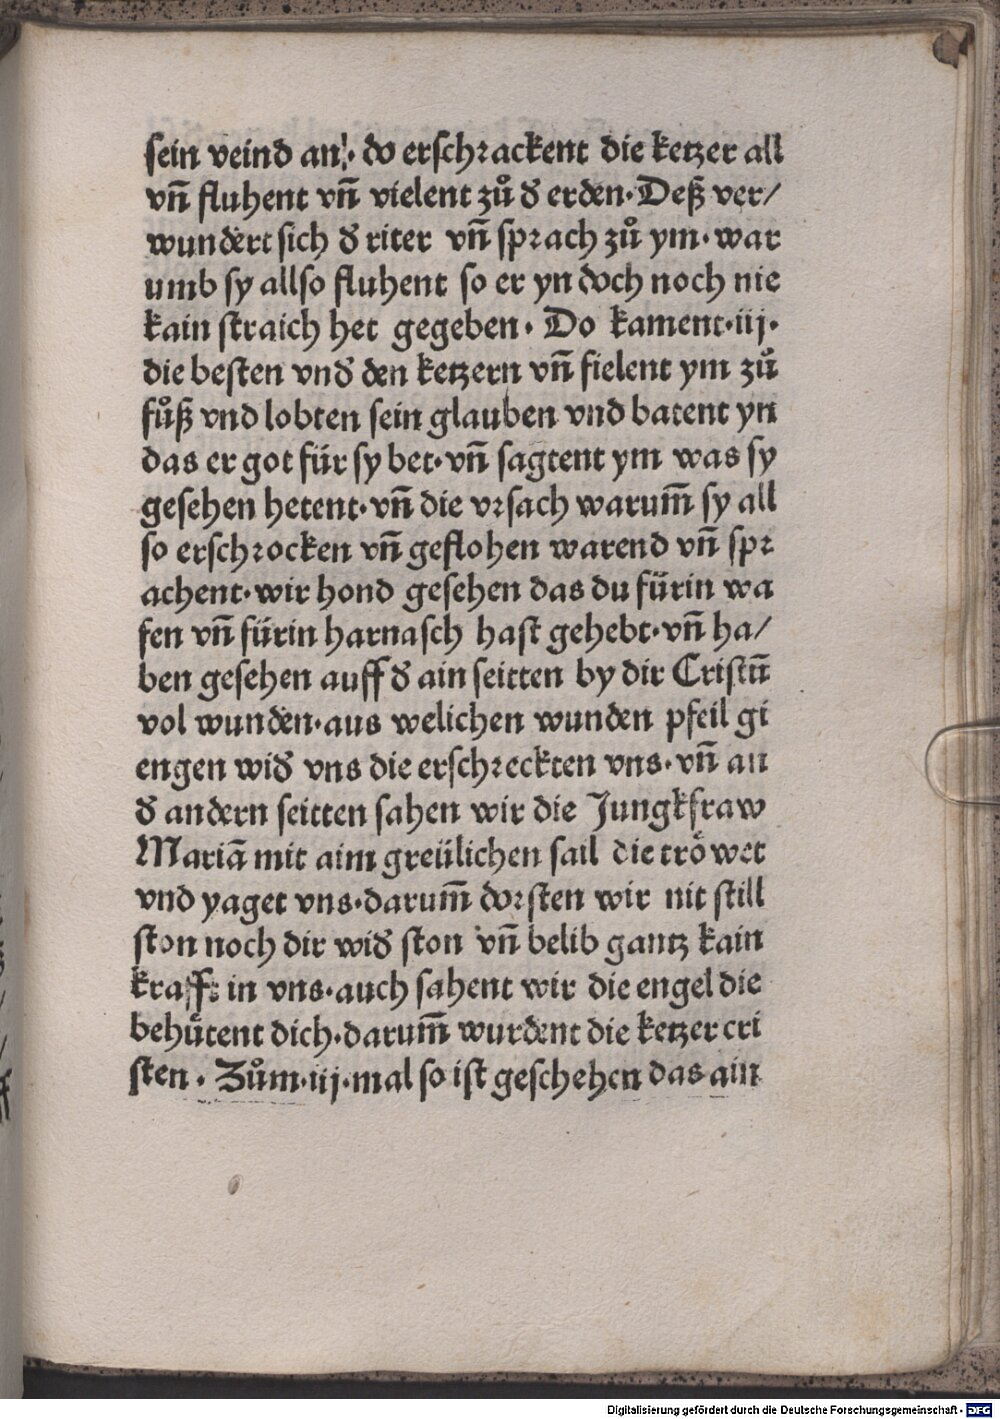 sein veind an· do erschrackent die ketzer all
vñ fluhent vñ vielent zů đ erden·Deß ver/
wundert sich đ riter vñ sprach zů ym·war
umb sy allso fluhent so er yn doch noch nie
kain straich het gegeben·Do kament·iij·
die besten vnđ den ketzern vñ fielent ym zů
fůß vnd lobten sein glauben vnd batent yn
das er got für sy bet·vñ sagtent ym was sy
gesehen hetent·vñ die vrsach warum̄ sy all
so erschrocken vñ geflohen warend vñ spr
achent·wir hond gesehen das du fürin wa
fen vñ fürin harnasch hast gehebt·vñ ha/
ben gesehen auff đ ain seitten by dir Cristū
vol wunden·aus welichen wunden pfeil gi
engen wiđ vns die erschreckten vns·vñ an
đ andern seitten sahen wir die Jungkfraw
Mariā mit aim greülichen sail die tröwet
vnd yaget vns·darum̄ dorsten wir nit still
ston noch dir wiđ ston vñ belib gantz kain
krafft in vns·auch sahent wir die engel die
behütent dich·darum̄ wurdent die ketzer cri
sten·Zům·iij·mal so ist geschehen das ain
Digitalisierung gefördert durch die Deutsche Forschungsgemeinschaft - DFG